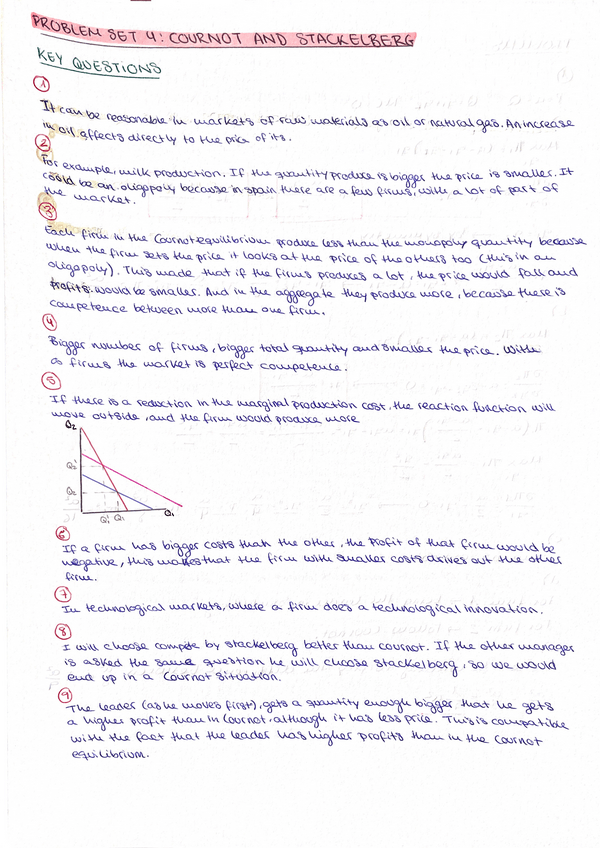 PROBLEM SET 4: COURNOT AND STACKELBERG
KEY QUESTIONS
1
It can be reasonable in markets of raw materials as oil or natural gas. An increase
in oil affects directly to the price of its.
2
For example, milk production. If the quantity produce is bigger the price is smaller. It
could be an oligopoly because in spain there are a few firms, with a lot of part of
the market.
3
Each firm in the Cournot equilibrium produce less than the monopoly quantity because
when the firm sets the price it looks at the price of the others too (this in an
oligopoly). This made that if the firms produces a lot, the price would fall and
profits would be smaller. And in the aggregate they produce more, because there is
competence between more than one firm.
4
Bigger number of firms, bigger total quantity and smaller the price. With
∞ firms the market is perfect competence.
5
If there is a reduction in the marginal production cost, the reaction function will
move outside, and the firm would produce more
Q2
Q2'
Q2
Q1' Q1 Q1
6
If a firm has bigger costs than the other, the profit of that firm would be
negative, this makes that the firm with smaller costs drives out the other
firm.
7
In technological markets, where a firm does a technological innovation.
8
I will choose compite by stackelberg better than cournot. If the other manager
is asked the same question he will choose stackelberg, so we would
end up in a Cournot situation.
9
The leader (as he moves first), gets a quantity enough bigger that he gets
a higher profit than in Cournot, although it has less price. This is compatible
with the fact that the leader has higher profits than in the Cournot
equilibrium.